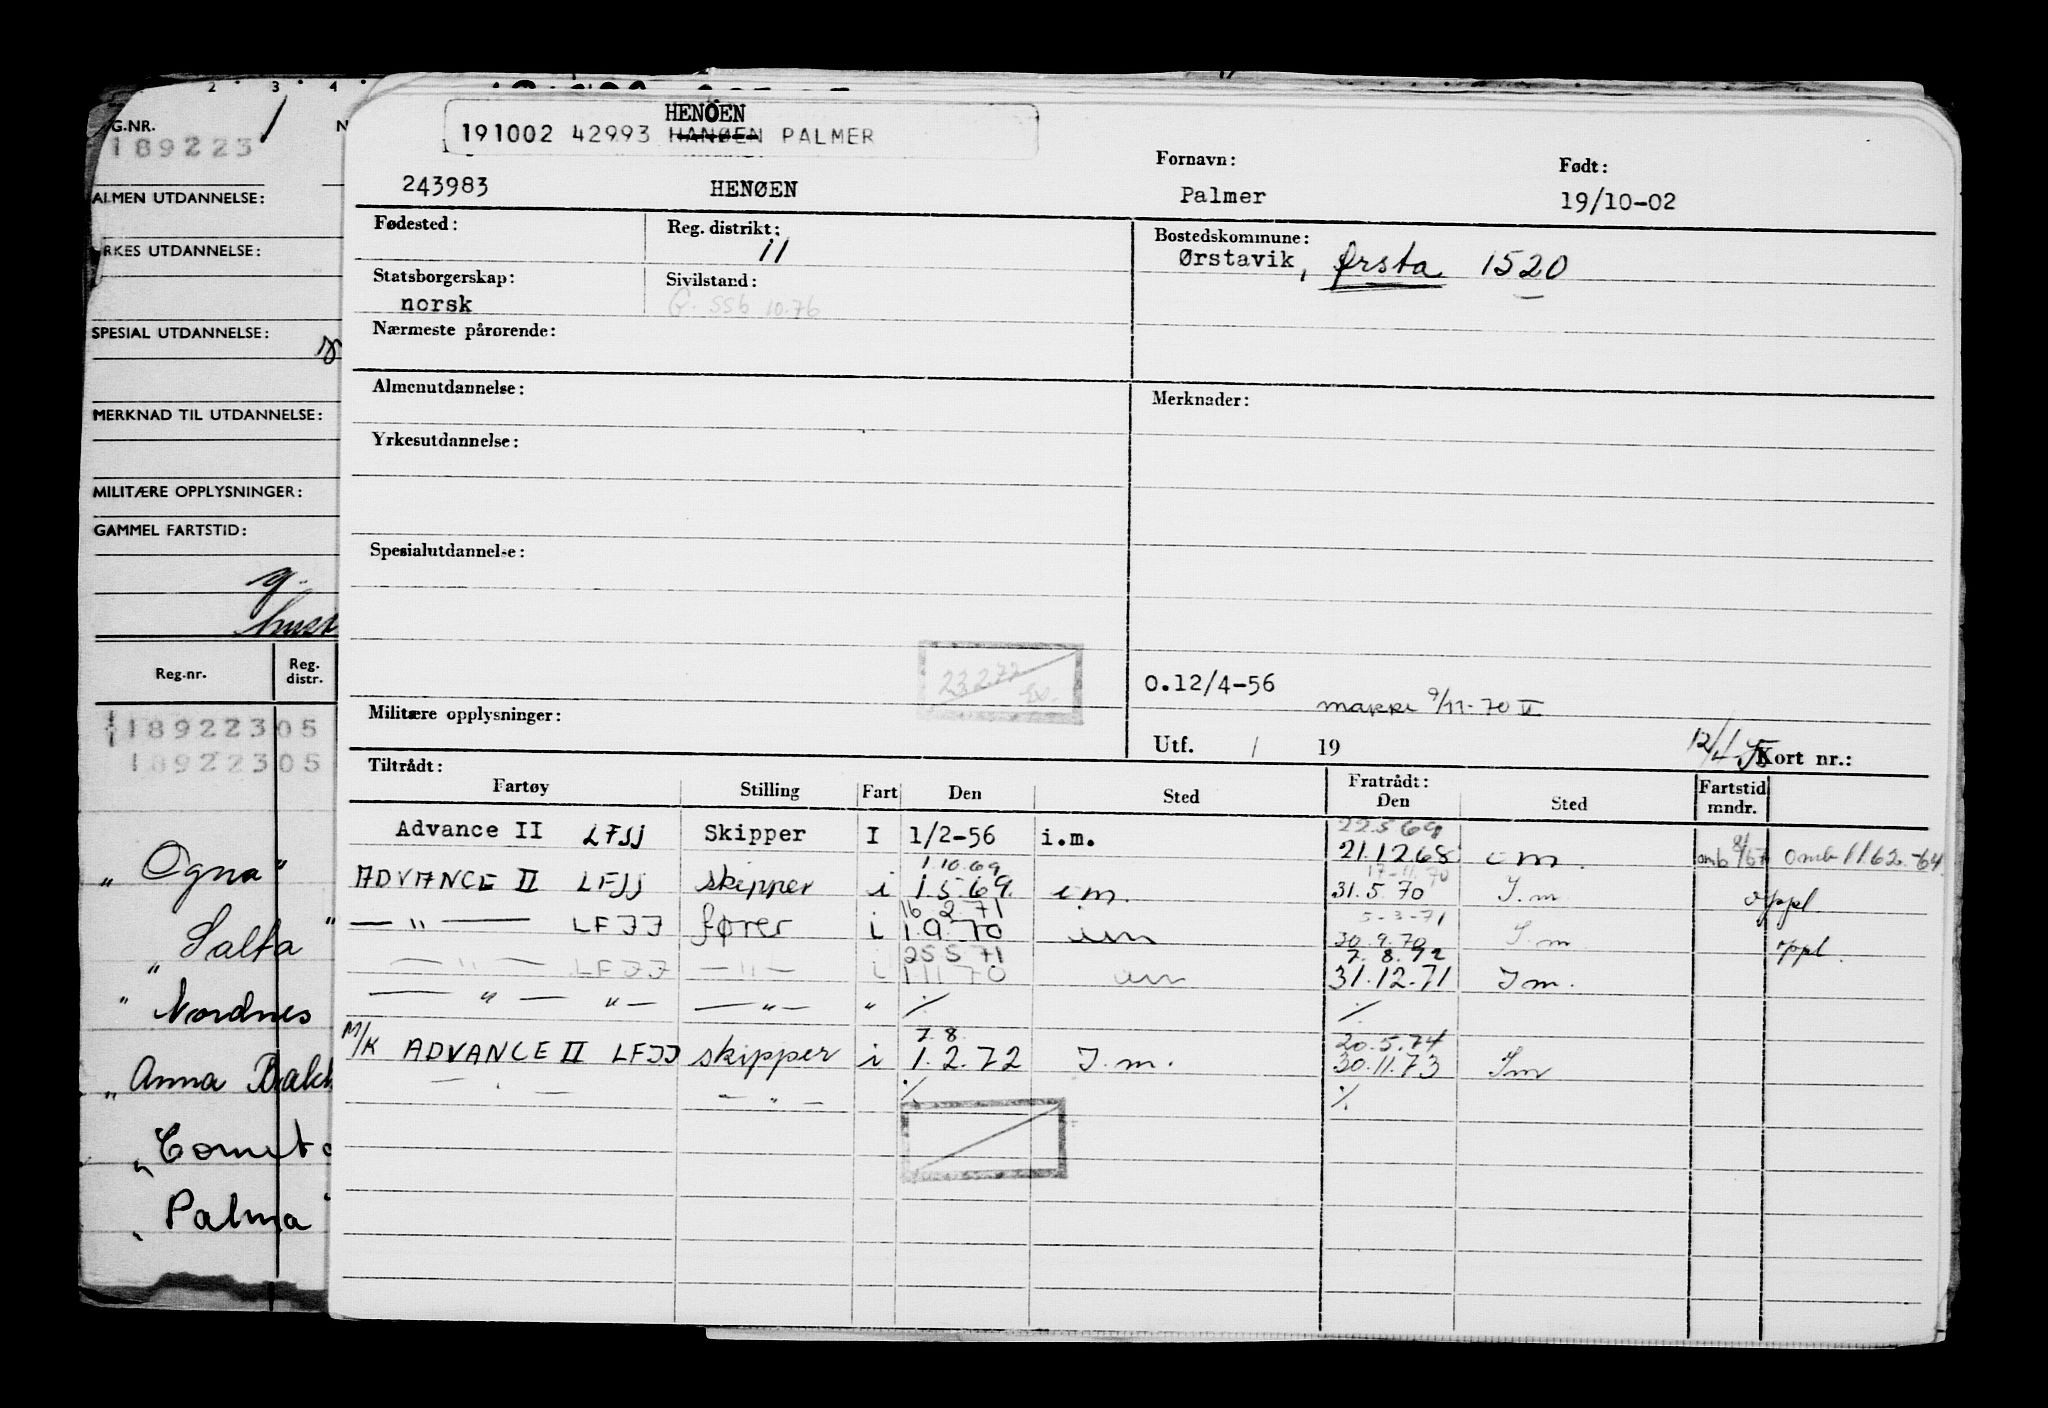 2 3 4
G.NR.
189223
ALMEN UTDANNELSE:
RKES UTDANNELSE:
SPESIAL UTDANNELSE:
MERKNAD TIL UTDANNELSE:
MILITÆRE OPPLYSNINGER:
GAMMEL FARTSTID:
Reg.nr. Reg. distr.
18922305
18922305
„ Ogna "
„ Salta "
" Nordnes
„ Anna Bakk
„
„ Palma "
HENØEN
191002 42993 HANØEN PALMER
Fornavn: Født:
243983 HENØEN Palmer 19/10-02
Fødested: Reg. distrikt: 11 Bostedskommune:
Ørstavik, Ørsta 1520
Statsborgerskap: Sivilstand:
norsk G. SSB 10.76
Nærmeste pårørende:
Almenutdannelse: Merknader:
Yrkesutdannelse:
Spesialutdannelse:
23.2 77
0.12/4-56
9/11-70
Militære opplysninger:
Utf. / 19 Kort nr.:
Tiltrådt: Fratrådt:
Fartøy Stilling Fart Den Sted Den Sted Fartstid mndr.
22.5 69
Advance II LFJJ Skipper I 1/2-56 i.m. 21.12.68 i m. omb 8/67 omb 11.62.-64
1.10.69 17-11.70
ADVANCE II LFJJ skipper i 1.5.69. i.m. 31.5 70 I.m. oppl.
16 2 71 5-3-71
— " — LFJJ fører i 1.9.70 i m 30.9.70 I.m oppl.
25 5 71 7.8.72
— " — LFJJ — " — i 1 11 70 i m 31.12.71 I m.
— " — " — — " — " ⁒ ⁒
7.8. 20.5.74
M/K ADVANCE II LFJJ skipper i 1.2.72 I.m. 30.11.73 Im
— " — — " — ⁒ ⁒